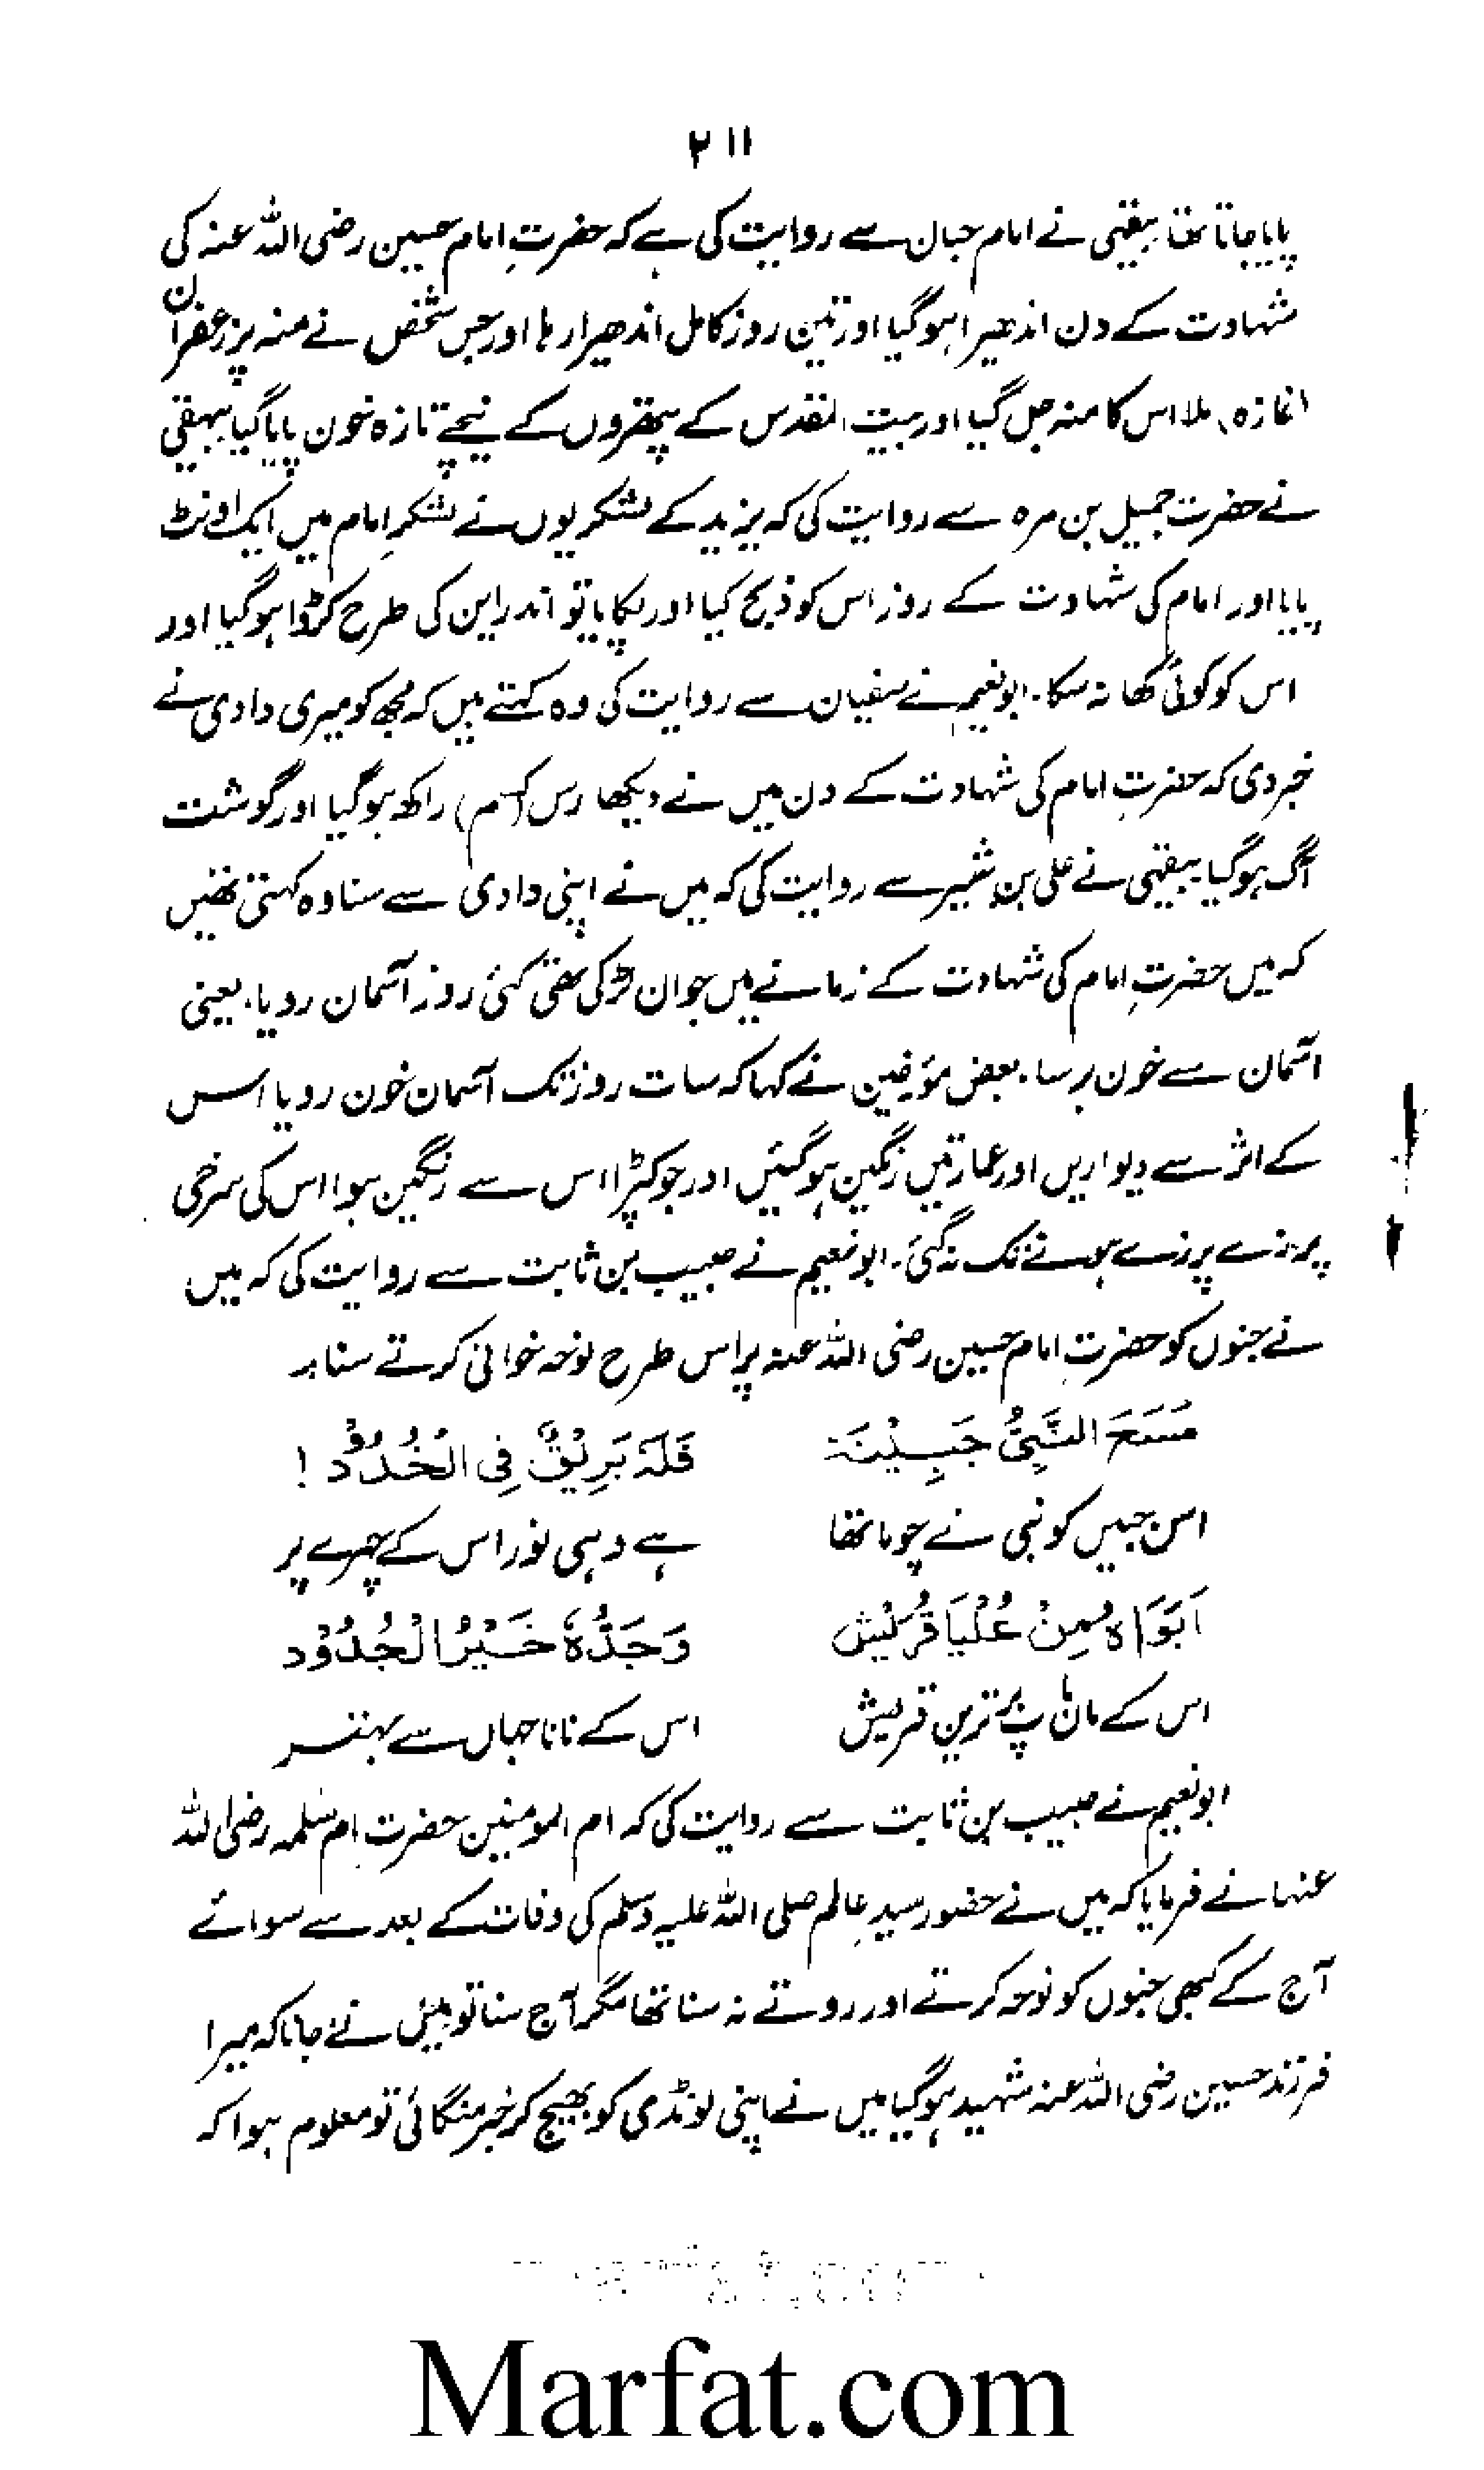 ۲۱۱
پایا جاتا تھا۔ بیہقی نے امام حبان سے روایت کی ہے کہ حضرتِ امام حسین رضی اللہ عنہ کی
شہادت کے دن اندھیرا ہوگیا اور تین روز کامل اندھیرا رہا اور جس شخص نے منہ پر زعفران
(غازہ) ملا اس کا منہ جل گیا اور بیت المقدس کے پتھروں کے نیچے تازہ خون پایا گیا بیہقی
نے حضرت جمیل بن مرہ سے روایت کی کہ یزید کے لشکریوں نے لشکرِ امام میں ایک اونٹ
پایا اور امام کی شہادت کے روز اس کو ذبح کیا اور پکایا تو اندراین کی طرح کڑوا ہوگیا اور
اس کو کوئی کھا نہ سکا۔ ابونعیم نے سفیان سے روایت کی وہ کہتے ہیں کہ مجھ کو میری دادی نے
خبر دی کہ حضرتِ امام کی شہادت کے دن میں نے دیکھا ورس (کسم) راکھ ہوگیا اور گوشت
آگ ہوگیا بیہقی نے علی بن شیر سے روایت کی کہ میں نے اپنی دادی سے سنا وہ کہتی تھیں
کہ میں حضرتِ امام کی شہادت کے زمانے میں جوان لڑکی تھی کئی روز آسمان رویا، یعنی
آسمان سے خون برسا۔ بعض مؤرخین نے کہا کہ سات روز تک آسمان خون رویا اس
کے اثر سے دیواریں اور عمارتیں رنگین ہوگئیں اور جو کپڑا اس سے رنگین ہوا اس کی سرخی
پرزے پرزے ہونے تک نہ گئی۔ ابونعیم نے حبیب بن ثابت سے روایت کی کہ میں
نے جنوں کو حضرتِ امام حسین رضی اللہ عنہ پر اس طرح نوحہ خوانی کرتے سنا
مَسَحَ النَّبِیُّ جَبِیْنَہٗ فَلَہٗ بَرِیْقٌ فِی الْخُدُوْدِ !
اس جبیں کو نبی نے چوما تھا ہے وہی نور اس کے چہرے پر
اَبَوَاہُ مِنْ عُلْیَا قُرَیْشٍ وَجَدُّہٗ خَیْرُ الْجُدُوْدِ
اس کے ماں باپ برترین قریش اس کے نانا جہاں سے بہتر
ابونعیم نے حبیب بن ثابت سے روایت کی کہ ام المومنین حضرت ام سلمہ رضی اللہ
عنہا نے فرمایا کہ میں نے حضور سیدِ عالم صلی اللہ علیہ وسلم کی وفات کے بعد سے سوائے
آج کے کبھی جنوں کو نوحہ کرتے اور روتے نہ سنا تھا مگر آج سنا تو میں نے جانا کہ میرا
فرزند حسین رضی اللہ عنہ شہید ہوگیا میں نے اپنی لونڈی کو بھیج کر خبر منگائی تو معلوم ہوا کہ
Marfat.com